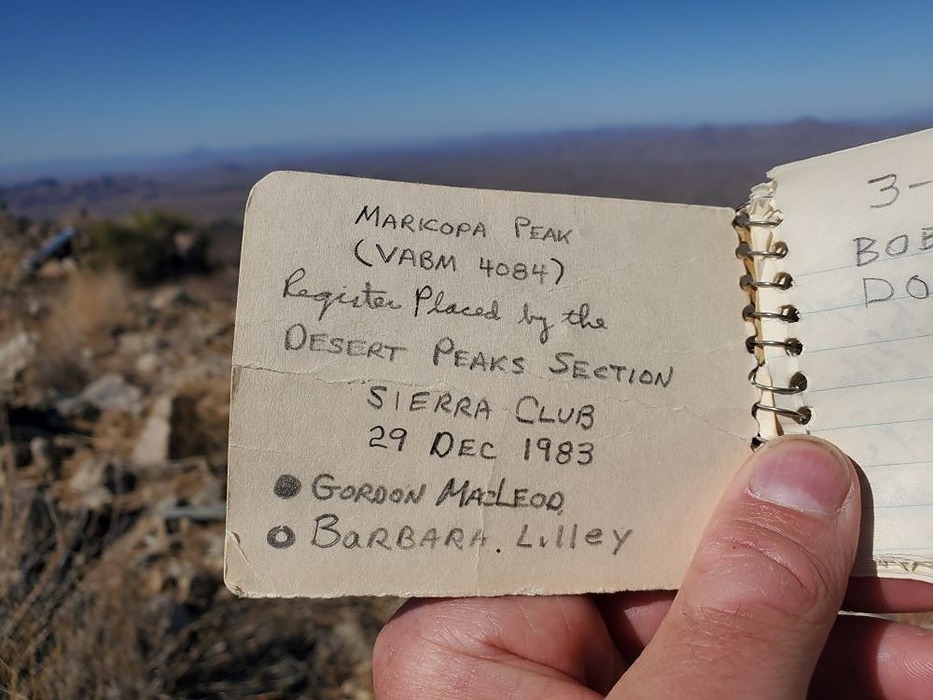 MARICOPA PEAK
(VABM 4084)
Register Placed by the
DESERT PEAKS SECTION
SIERRA CLUB
29 DEC 1983
GORDON MACLEOD
BARBARA. Lilley
3-
BOB
DO